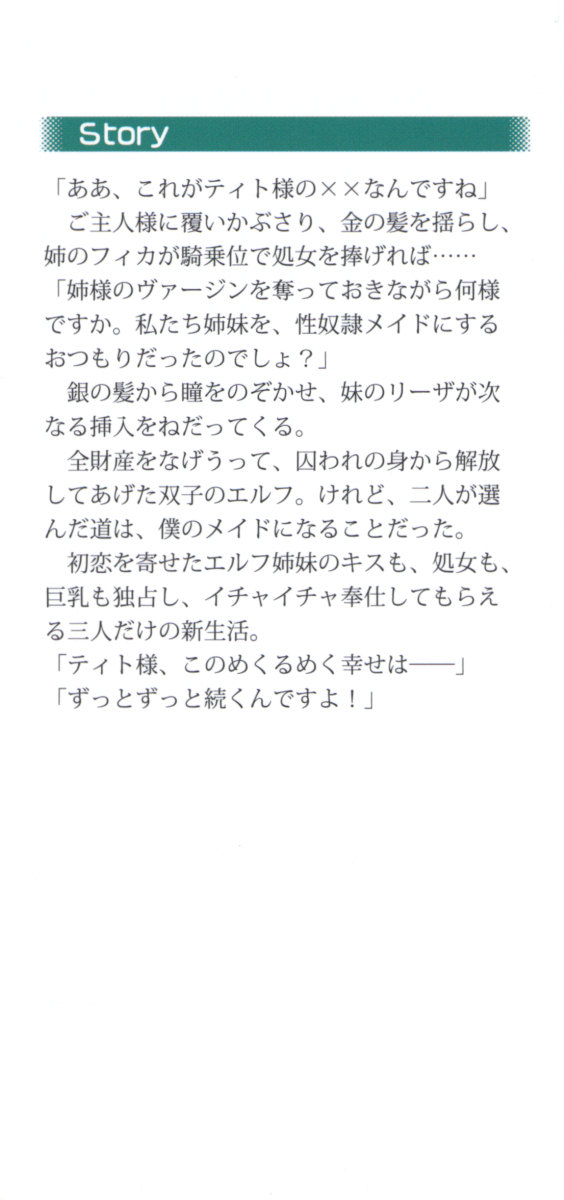 Story
「ああ、これがティト様の××なんですね」
　ご主人様に覆いかぶさり、金の髪を揺らし、
姉のフィカが騎乗位で処女を捧げれば……
「姉様のヴァージンを奪っておきながら何様
ですか。私たち姉妹を、性奴隷メイドにする
おつもりだったのでしょ？」
　銀の髪から瞳をのぞかせ、妹のリーザが次
なる挿入をねだってくる。
　全財産をなげうって、囚われの身から解放
してあげた双子のエルフ。けれど、二人が選
んだ道は、僕のメイドになることだった。
　初恋を寄せたエルフ姉妹のキスも、処女も、
巨乳も独占し、イチャイチャ奉仕してもらえ
る三人だけの新生活。
「ティト様、このめくるめく幸せは――」
「ずっとずっと続くんですよ！」